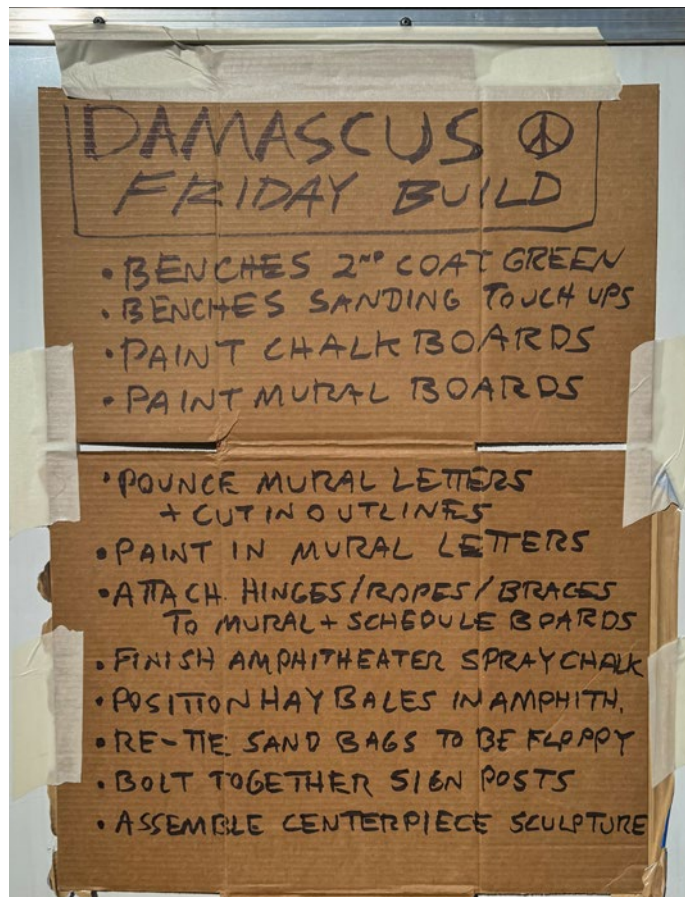 DAMASCUS ☮
FRIDAY BUILD
• BENCHES 2ND COAT GREEN
• BENCHES SANDING TOUCH UPS
• PAINT CHALK BOARDS
• PAINT MURAL BOARDS
• POUNCE MURAL LETTERS
+ CUT IN OUTLINES
• PAINT IN MURAL LETTERS
• ATTACH HINGES/ROPES/BRACES
TO MURAL + SCHEDULE BOARDS
• FINISH AMPHITHEATER SPRAY CHALK
• POSITION HAY BALES IN AMPHITH.
• RE-TIE SAND BAGS TO BE FLOPPY
• BOLT TOGETHER SIGN POSTS
• ASSEMBLE CENTERPIECE SCULPTURE